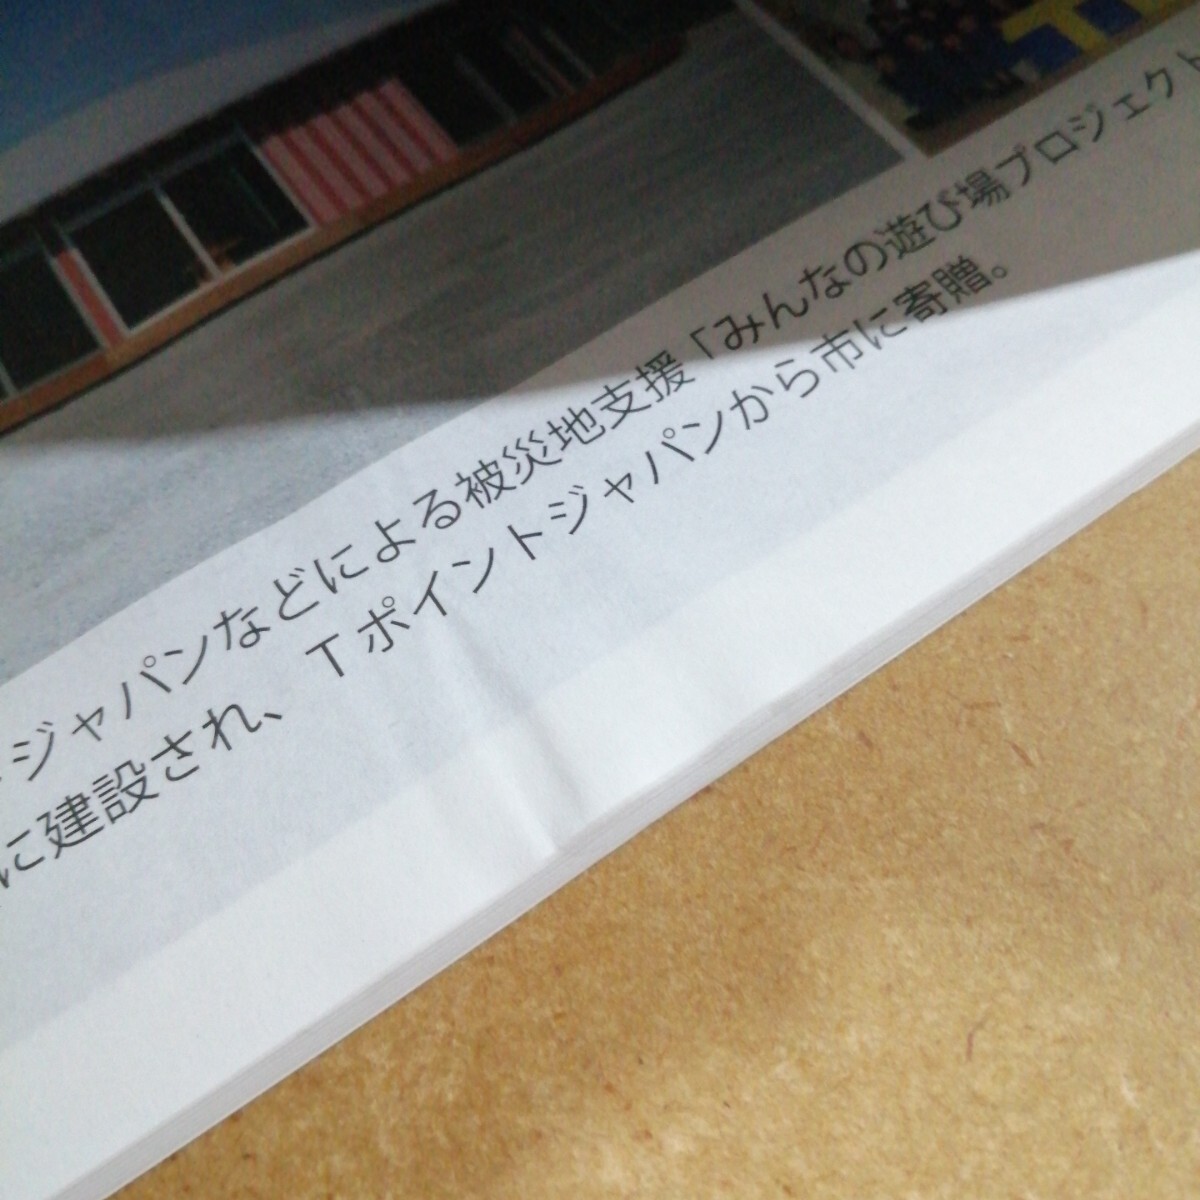 ジャパンなどによる被災地支援「みんなの遊び場プロジェクト
に建設され、Tポイントジャパンから市に寄贈。